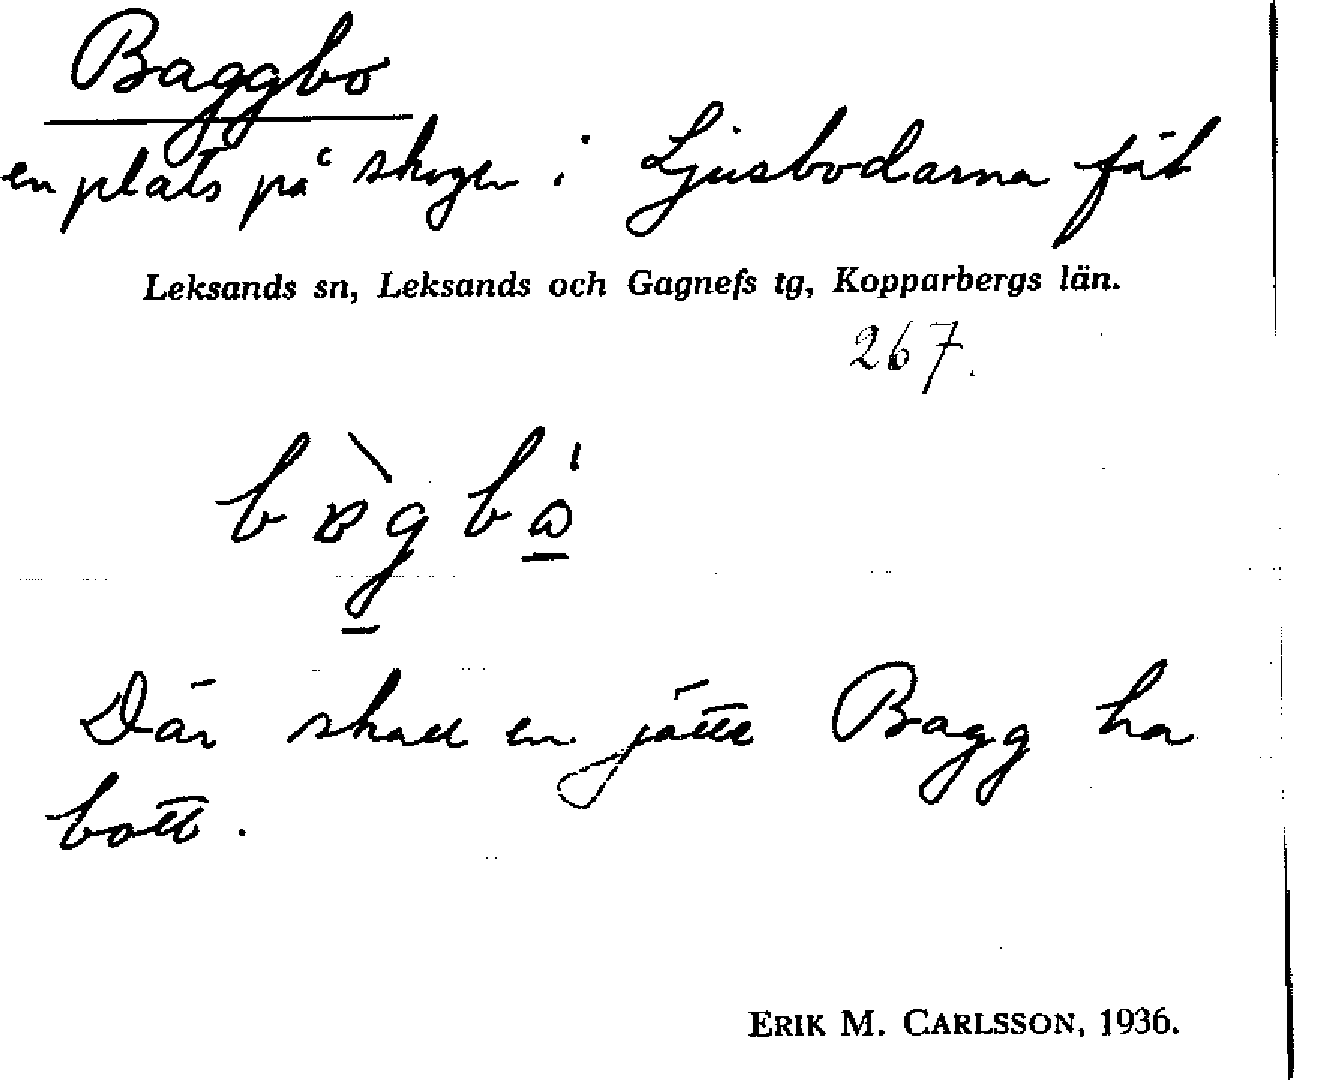 Baggbo
en plats på skogen i Ljusbodarna fäb
Leksands sn, Leksands och Gagnefs tg, Kopparbergs län.
267.
Där skall en jätte Bagg ha
bott.
ERIK M. CARLSSON, 1936.